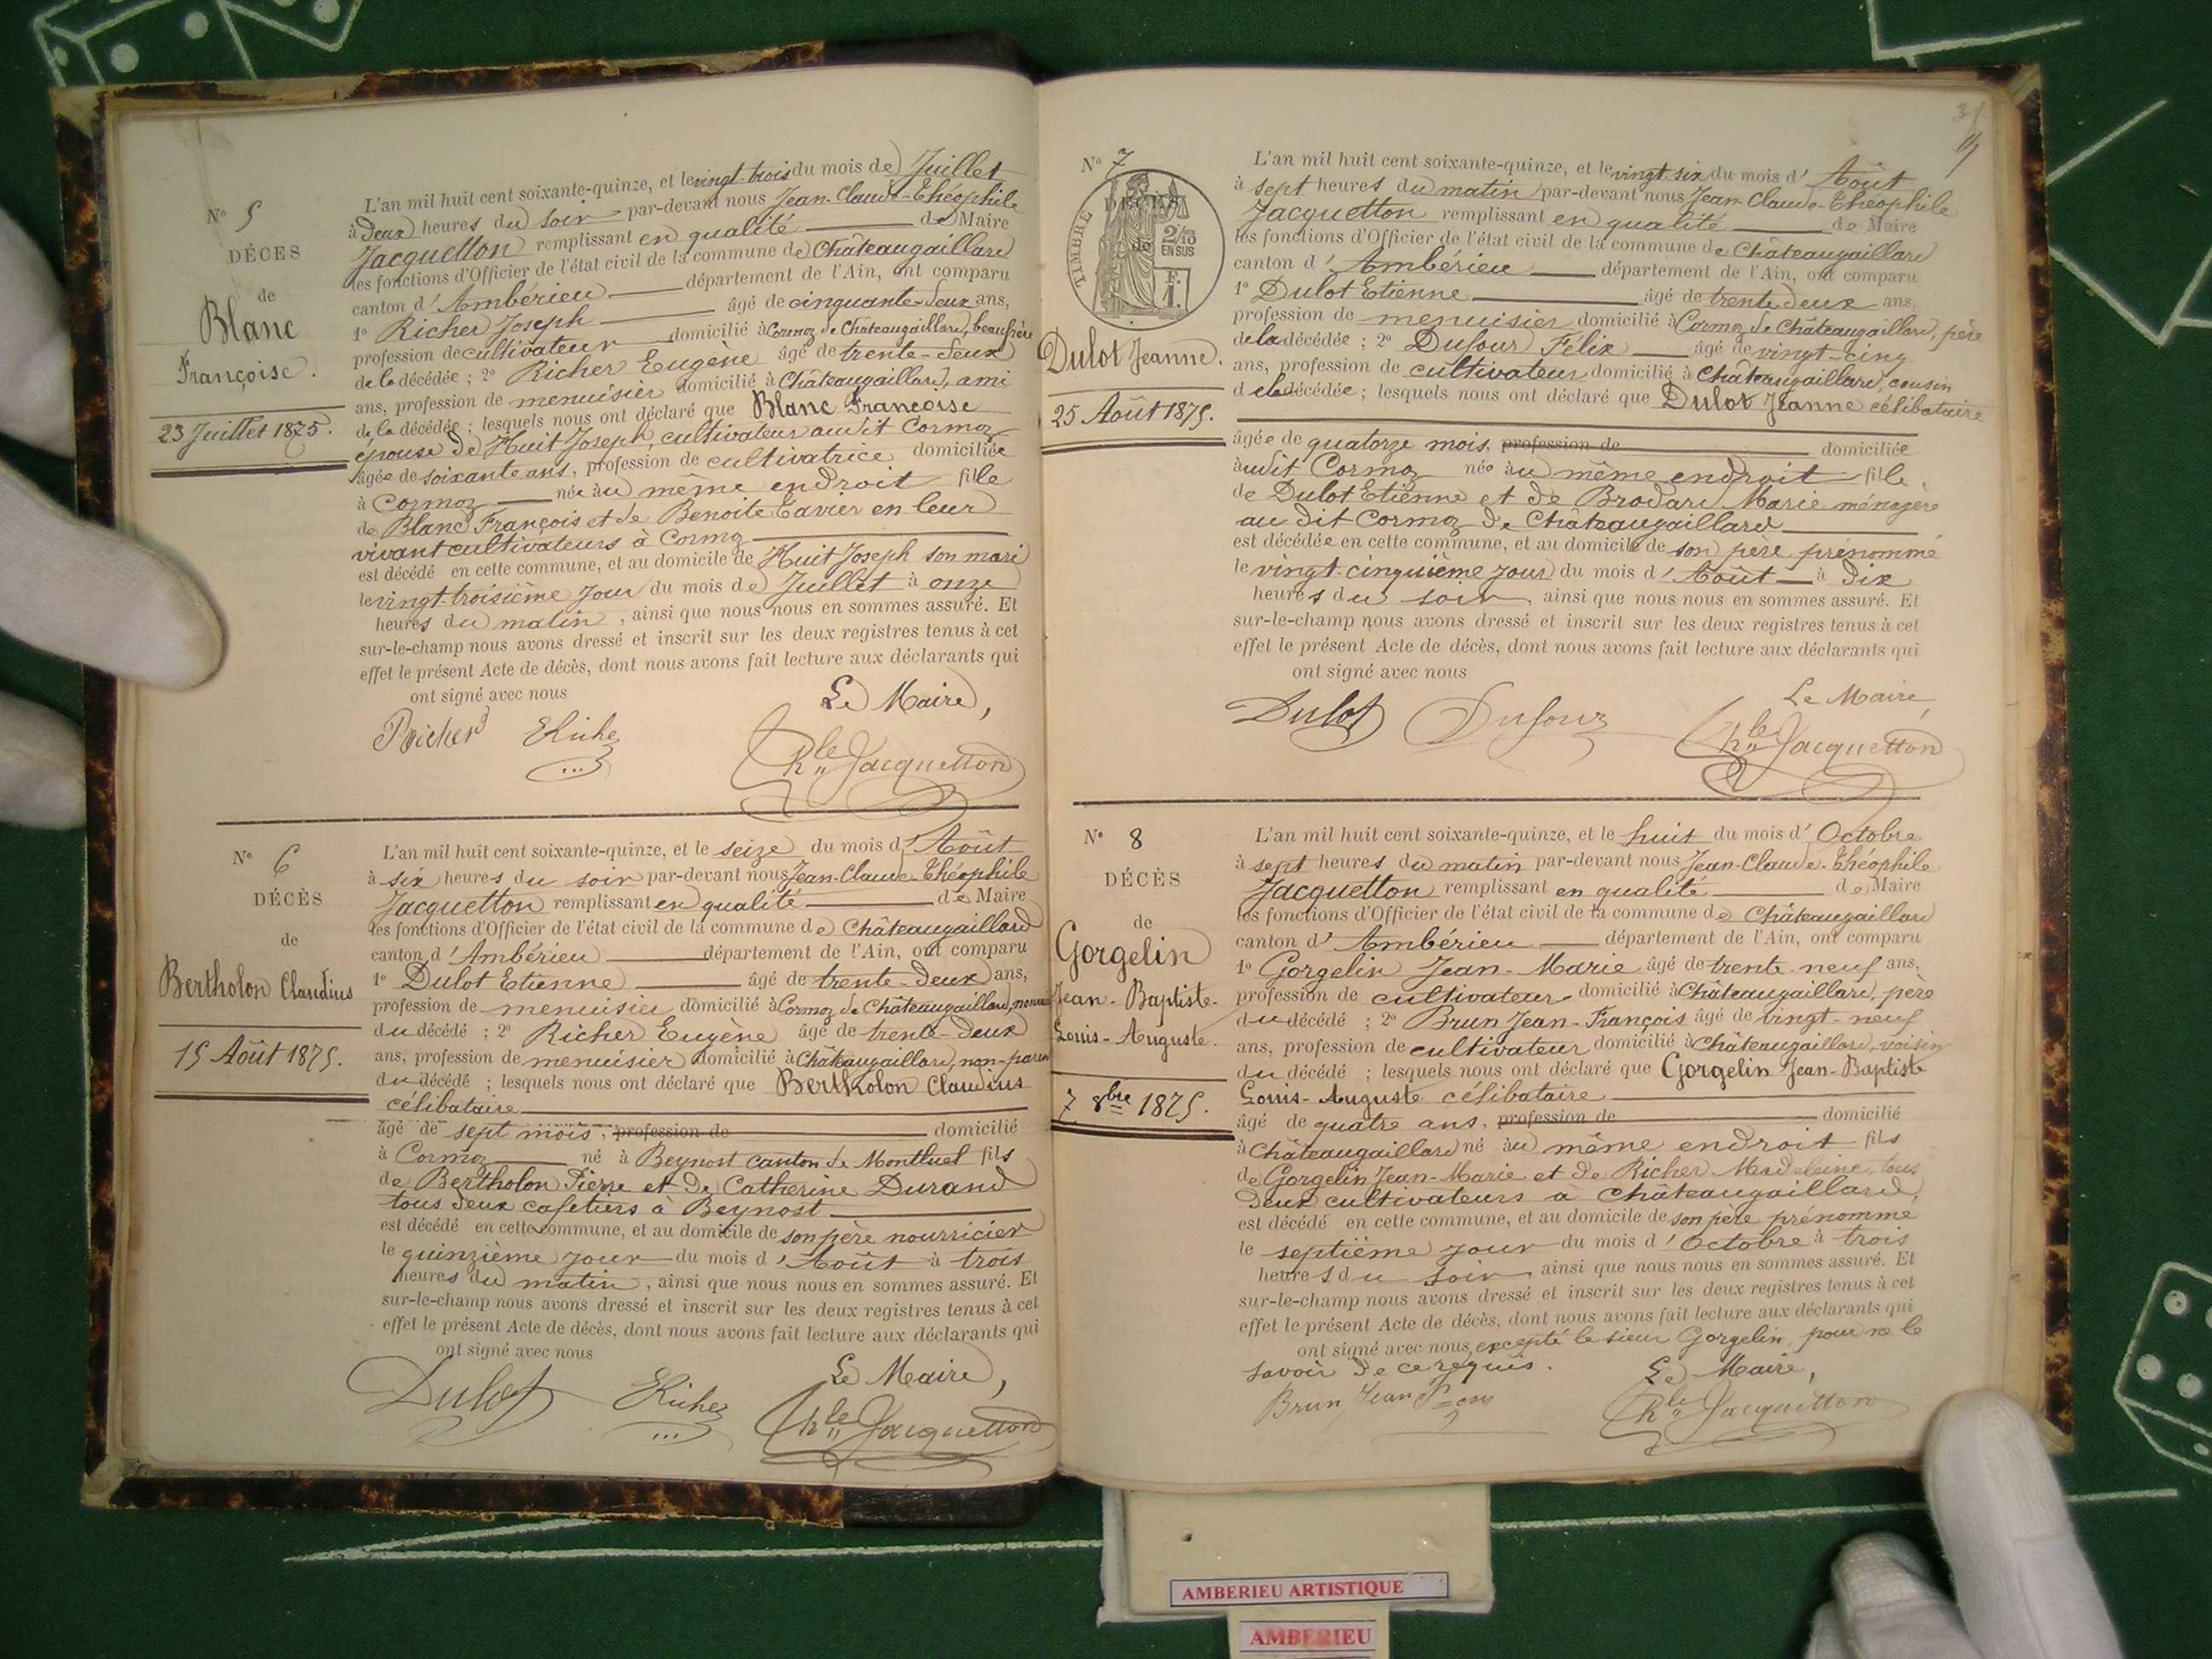 Nº 5
DÉCÈS
de
Blanc
Françoise.
23 Juillet 1875.
L'an mil huit cent soixante-quinze, et le vingt-trois du mois de Juillet
à deux heures du soir par-devant nous Jean-Claude-Théophile
Jacquetton remplissant en qualité de Maire
les fonctions d'Officier de l'état civil de la commune de Châteaugaillard
canton d'Ambérieu département de l'Ain, ont comparu
1º Richer Joseph âgé de cinquante-deux ans,
profession de cultivateur domicilié à Cormoz de Châteaugaillard, beau frère
de la décédée ; 2º Richer Eugène âgé de trente-deux
ans, profession de menuisier domicilié à Châteaugaillard, ami
de la décédée ; lesquels nous ont déclaré que Blanc Françoise
épouse de Huit Joseph cultivateur audit Cormoz
âgée de soixante ans, profession de cultivatrice domiciliée
à Cormoz née au même endroit fille
de Blanc François et de Benoite Tavier en leur
vivant cultivateurs à Cormoz
est décédé en cette commune, et au domicile de Huit Joseph son mari
le vingt-troisième jour du mois de Juillet à onze
heures du matin, ainsi que nous nous en sommes assuré. Et
sur-le-champ nous avons dressé et inscrit sur les deux registres tenus à cet
effet le présent Acte de décès, dont nous avons fait lecture aux déclarants qui
ont signé avec nous
Le Maire,
Richer ERicher Jacquetton
Nº 6
DÉCÈS
de
Bertholon Claudius
15 Août 1875.
L'an mil huit cent soixante-quinze, et le seize du mois d'Août
à six heures du soir par-devant nous Jean-Claude-Théophile
Jacquetton remplissant en qualité de Maire
les fonctions d'Officier de l'état civil de la commune de Châteaugaillard
canton d'Ambérieu département de l'Ain, ont comparu
1º Dulot Etienne âgé de trente-deux ans,
profession de menuisier domicilié à Cormoz de Châteaugaillard,
du décédé ; 2º Richer Eugène âgé de trente-deux
ans, profession de menuisier domicilié à Châteaugaillard, non-parent
du décédé ; lesquels nous ont déclaré que Bertholon Claudius
célibataire
âgé de sept mois, profession de domicilié
à Cormoz né à Beynost canton de Montluel fils
de Bertholon Pierre et de Catherine Durand
tous deux cafetiers à Beynost
est décédé en cette commune, et au domicile de son père nourricier
le quinzième jour du mois d'Août à trois
heures du matin, ainsi que nous nous en sommes assuré. Et
sur-le-champ nous avons dressé et inscrit sur les deux registres tenus à cet
effet le présent Acte de décès, dont nous avons fait lecture aux déclarants qui
ont signé avec nous
Le Maire,
Dulot ERicher Jacquetton
Nº 7
DÉCÈS
de
TIMBRE
2/10
EN SUS
F.
1.
Dulot Jeanne.
25 Août 1875.
L'an mil huit cent soixante-quinze, et le vingt six du mois d'Août
à sept heures du matin par-devant nous Jean-Claude-Théophile
Jacquetton remplissant en qualité de Maire
les fonctions d'Officier de l'état civil de la commune de Châteaugaillard
canton d'Ambérieu département de l'Ain, ont comparu
1º Dulot Etienne âgé de trente deux ans,
profession de menuisier domicilié à Cormoz de Châteaugaillard, père
de la décédée ; 2º Dufour Félix âgé de vingt-cinq
ans, profession de cultivateur domicilié à Châteaugaillard, cousin
de la décédée ; lesquels nous ont déclaré que Dulot Jeanne célibataire
âgée de quatorze mois, profession de domiciliée
audit Cormoz née au même endroit fille
de Dulot Etienne et de Brodard Marie ménagère
au dit Cormoz de Châteaugaillard
est décédée en cette commune, et au domicile de son père prénommé
le vingt-cinquième jour du mois d'Août à dix
heures du soir ainsi que nous nous en sommes assuré. Et
sur-le-champ nous avons dressé et inscrit sur les deux registres tenus à cet
effet le présent Acte de décès, dont nous avons fait lecture aux déclarants qui
ont signé avec nous
Le Maire,
Dulot Dufour Jacquetton
Nº 8
DÉCÈS
de
Gorgelin
Jean-Baptiste-
Louis-Auguste.
7 8bre 1875.
L'an mil huit cent soixante-quinze, et le huit du mois d'Octobre
à sept heures du matin par-devant nous Jean-Claude-Théophile
Jacquetton remplissant en qualité de Maire
les fonctions d'Officier de l'état civil de la commune de Châteaugaillard
canton d'Ambérieu département de l'Ain, ont comparu
1º Gorgelin Jean-Marie âgé de trente-neuf ans,
profession de cultivateur domicilié à Châteaugaillard, père
du décédé ; 2º Brun Jean-François âgé de vingt-neuf
ans, profession de cultivateur domicilié à Châteaugaillard, voisin
du décédé ; lesquels nous ont déclaré que Gorgelin Jean-Baptiste
Louis-Auguste célibataire
âgé de quatre ans, profession de domicilié
à Châteaugaillard né au même endroit fils
de Gorgelin Jean-Marie et de Richer Madeleine, tous
deux cultivateurs à Châteaugaillard,
est décédé en cette commune, et au domicile de son père prénommé
le septième jour du mois d'Octobre à trois
heures du soir ainsi que nous nous en sommes assuré. Et
sur-le-champ nous avons dressé et inscrit sur les deux registres tenus à cet
effet le présent Acte de décès, dont nous avons fait lecture aux déclarants qui
ont signé avec nous excepté le sieur Gorgelin, pour ne le
savoir de ce requis.
Le Maire,
Brun Jean Jacquetton
AMBERIEU ARTISTIQUE
AMBERIEU